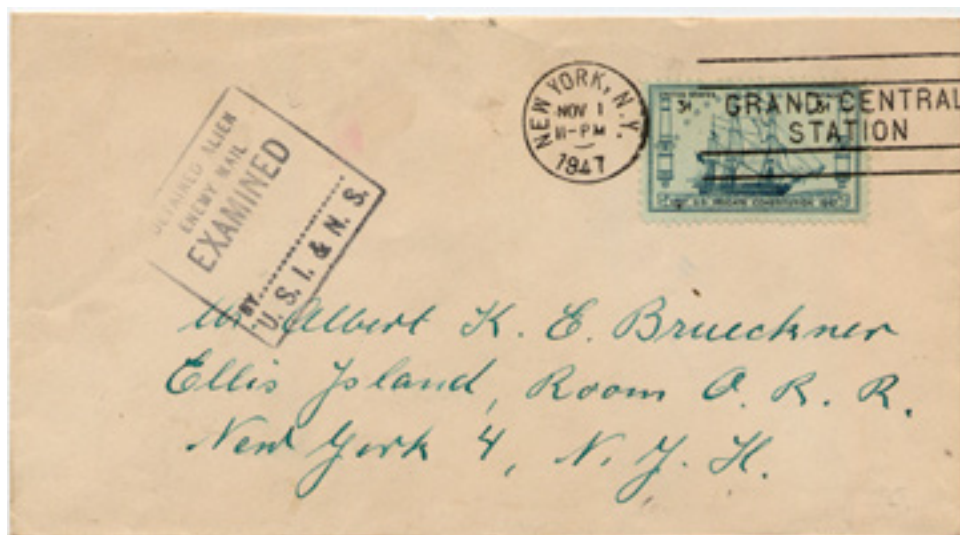 DETAINED ALIEN
ENEMY MAIL
EXAMINED
BY
U. S. I. & N. S.
NEW YORK, N.Y.
NOV 1
11-PM
1947
GRAND CENTRAL
STATION
3¢
U.S. FRIGATE CONSTITUTION
Mr Albert K. E. Brueckner
Ellis Island, Room O. R. R.
New York 4, N. Y. H.